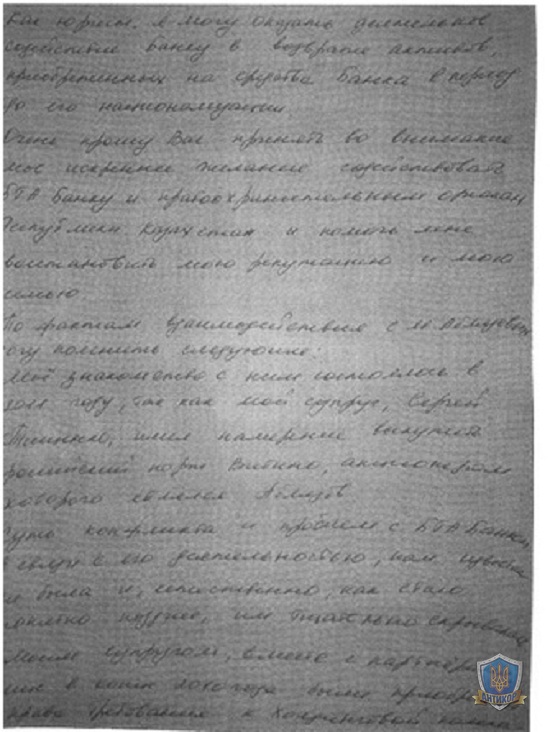 Как юрист, я могу оказать деятельное
содействие банку в возврате активов,
приобретенных на средства Банка в период
до его национализации.
Очень прошу Вас принять во внимание
мое искреннее желание содействовать
БТА Банку и правоохранительным органам
Республики Казахстан и помочь мне
восстановить мою репутацию и мою
семью.
По фактам взаимодействия с м. Аблязовым
могу пояснить следующее:
Моё знакомство с ним состоялось в
году, так как мой супруг, Сергей
имел намерение выкупить
российский порт Витино, акционером
которого являлся Аблязов
Суть конфликта и проблем с БТА Банком,
в связи с его деятельностью, нам известна
не была и, естественно, как стало
известно позднее, им тщательно скрывалась
Моим супругом, вместе с партнёрами
в 2010 года были
право требования к холдинговой компании
АНТИКОР